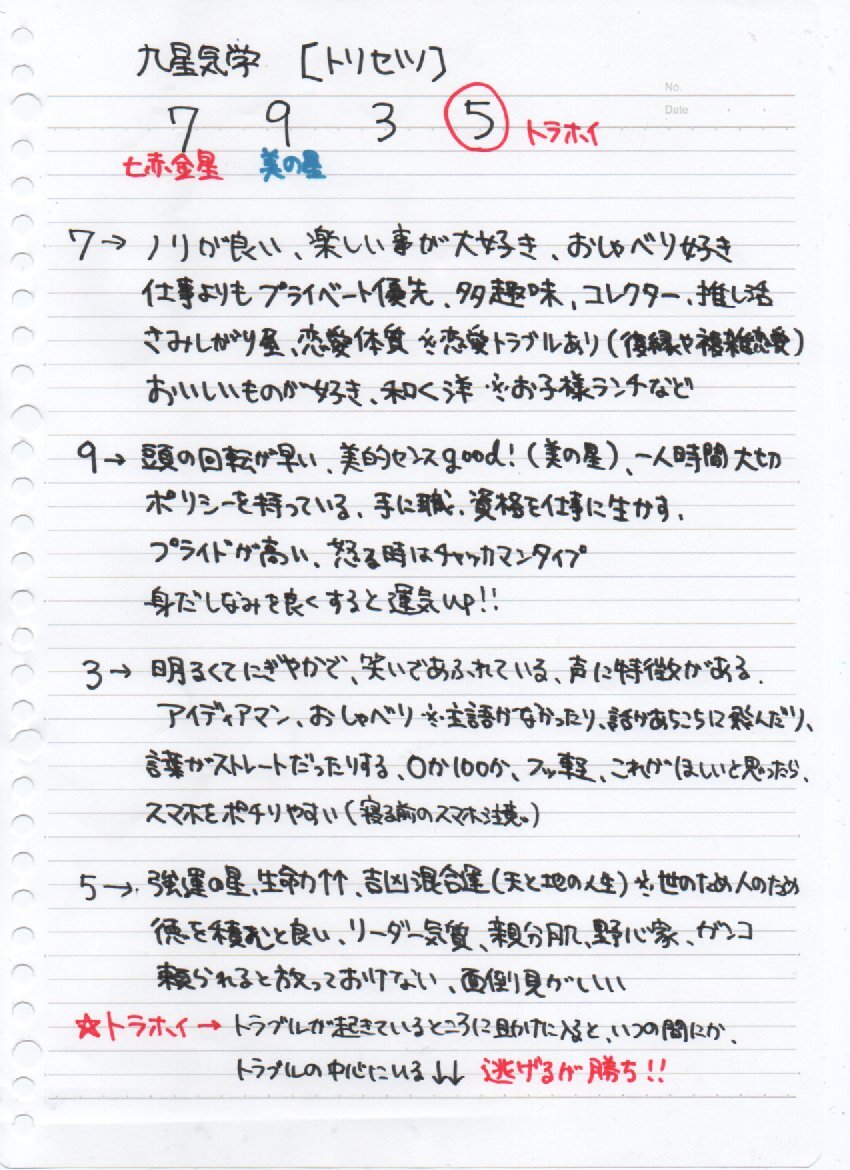 九星気学 [トリセツ]
No.
7 9 3 5 トラホイ
Date
七赤金星 美の星
7→ ノリが良い、楽しい事が大好き、おしゃべり好き
仕事よりもプライベート優先、多趣味、コレクター、推し活
さみしがり屋、恋愛体質 ※恋愛トラブルあり(復縁や複雑恋愛)
おいしいものが好き、和<洋 ※お子様ランチなど
9→ 頭の回転が早い、美的センスgood!(美の星)、一人時間大切
ポリシーを持っている、手に職、資格を仕事に生かす、
プライドが高い、怒る時はチャッカマンタイプ
身だしなみを良くすると運気up!!
3→ 明るくてにぎやかで、笑いであふれている、声に特徴がある、
アイディアマン、おしゃべり ※主語がなかったり、話があちこちに飛んだり、
言葉がストレートだったりする、0か100か、フッ軽、これがほしいと思ったら、
スマホをポチりやすい(寝る前のスマホ注意。)
5→ 強運の星、生命力↑↑、吉凶混合運(天と地の人生) ※世のため人のため
徳を積むと良い、リーダー気質、親分肌、野心家、ガンコ
頼られると放っておけない、面倒見がいい
☆トラホイ→ トラブルが起きているところに助けに入ると、いつの間にか、
トラブルの中心にいる↓↓ 逃げるが勝ち!!